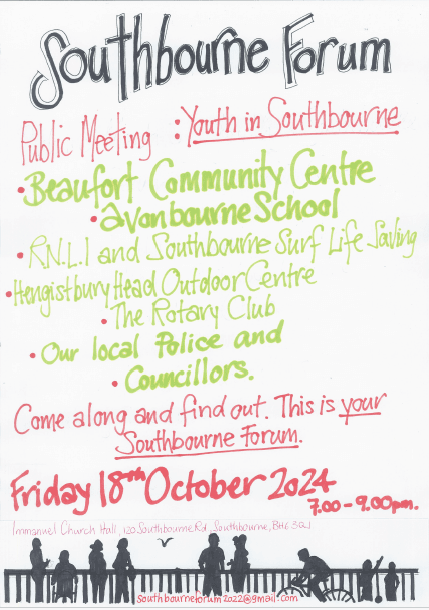 Southbourne Forum
Public Meeting : Youth in Southbourne
• Beaufort Community Centre
• avonbourne School
• R.N.L.I and Southbourne Surf Life Saving
• Hengistbury Head Outdoor Centre
• The Rotary Club
• Our local Police and
• Councillors.
Come along and find out. This is your
Southbourne Forum.
Friday 18th October 2024
7.00 - 9.00pm.
Immanuel Church Hall, 120 Southbourne Rd, Southbourne, BH6 3QJ
southbourneforum2022@gmail.com